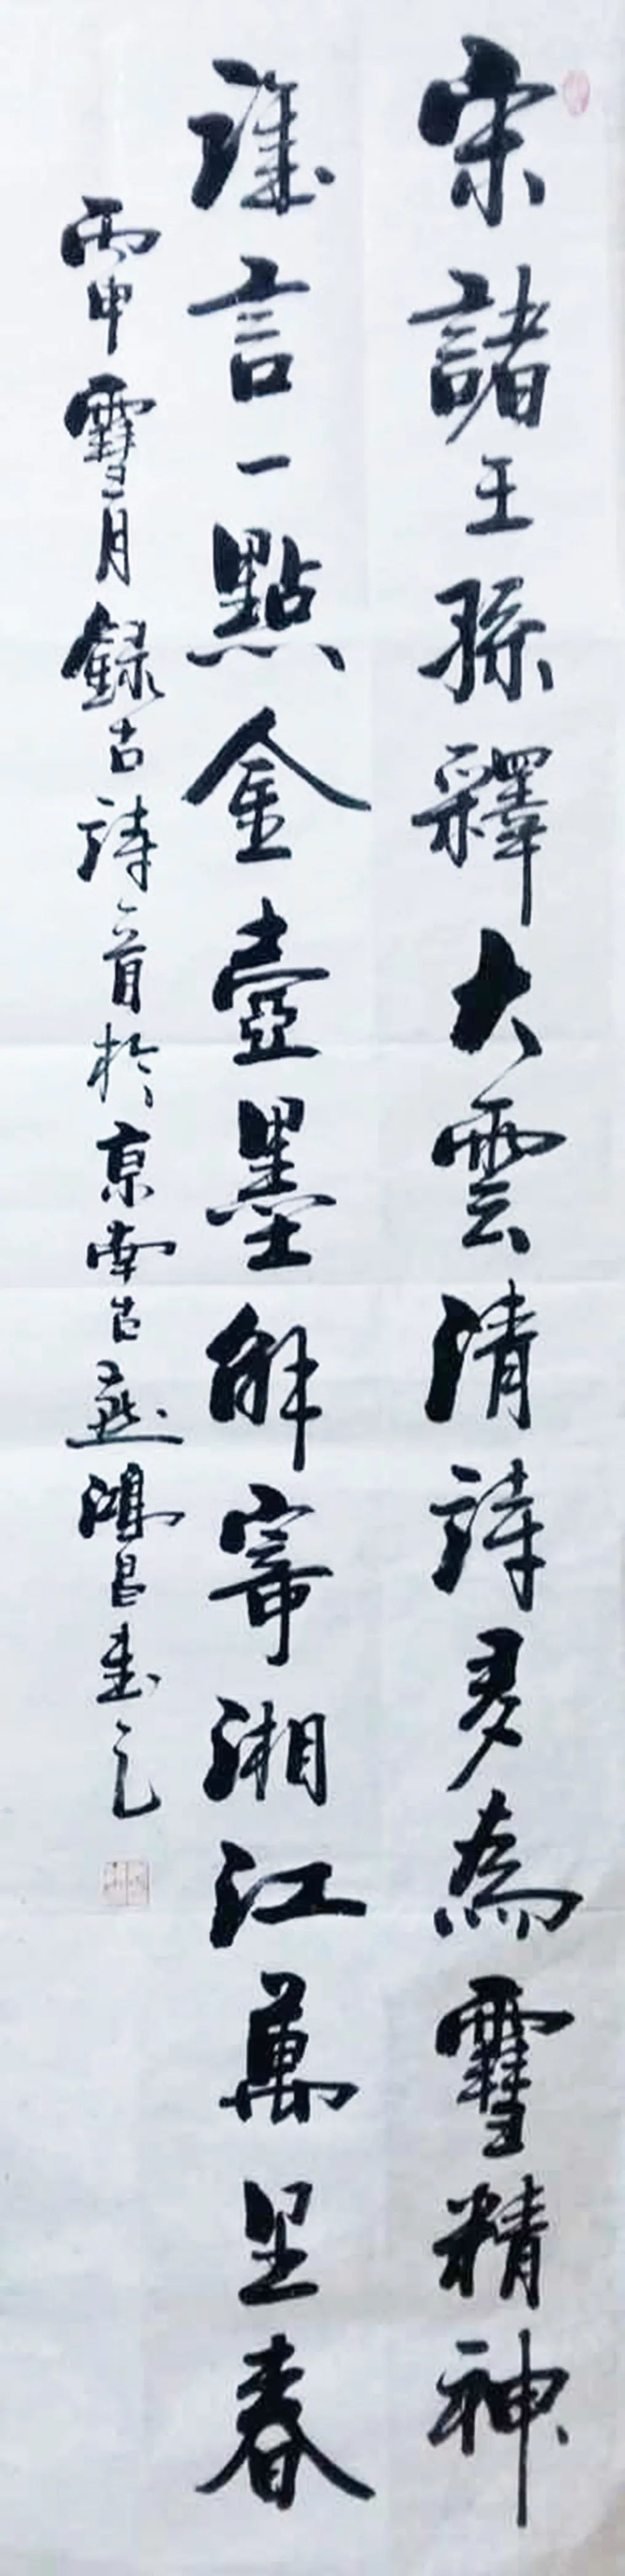 宋諸王孫釋大雲清詩多為雪精神
誰言一點金壺墨解寫湘江萬里春
丙申雪月錄古詩一首於京南古燕鴻昌書之